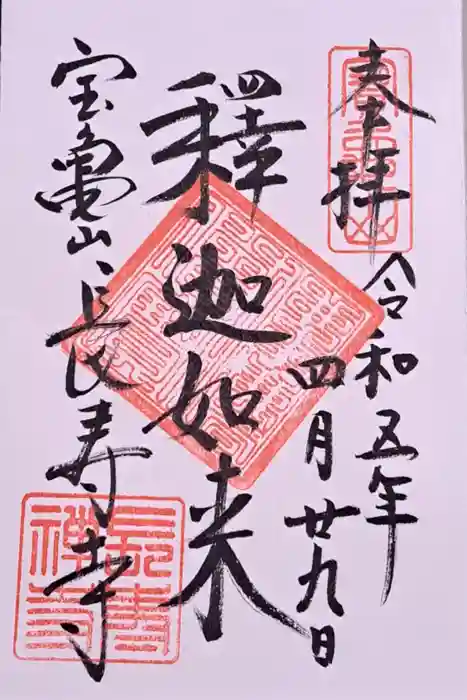 奉拝
令和五年
四月廿九日
釋迦如来
宝亀山 長寿寺
長寿
禅寺